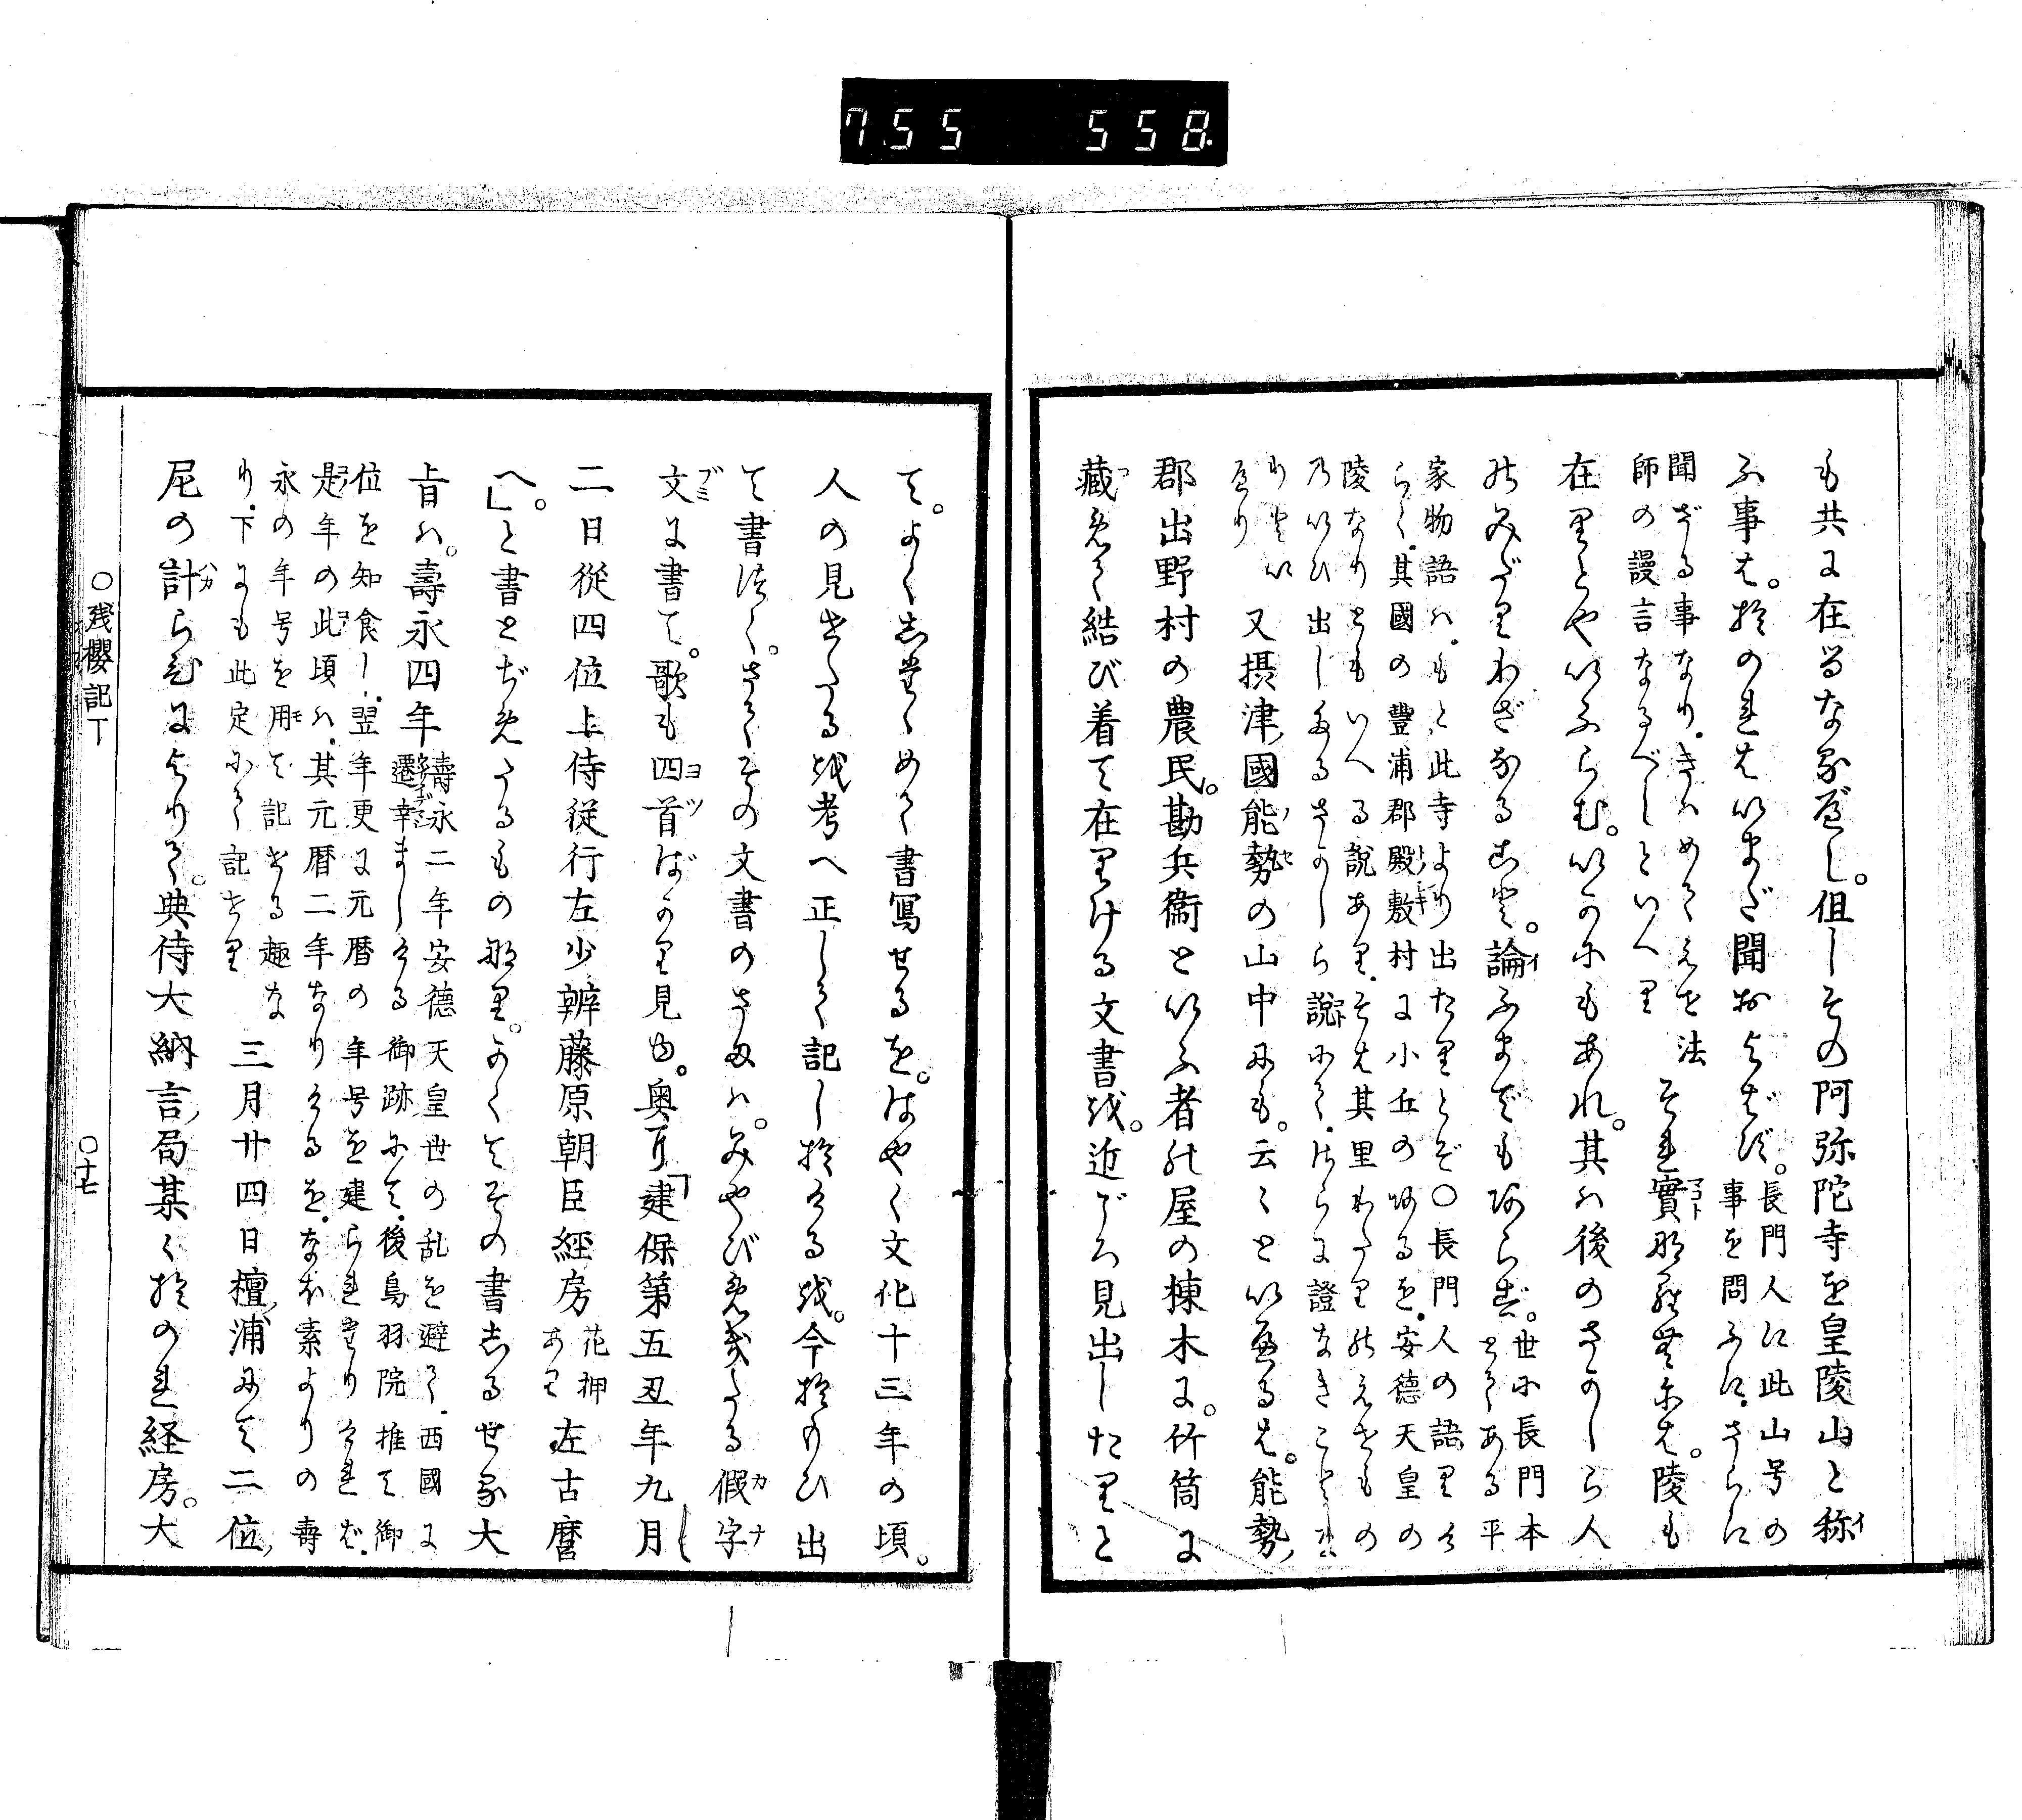 755 558
も共に在るなるべし。但しその阿弥陀寺を皇陵山と称
ふ事は。おのれはいまだ聞およばず。
長門人に此山号の
事を問ふに、さらに
聞ざる事なり、きはめてえせ法
師の謾言なるべしといへり
それ實ならむには。陵も
在りとやいふらむ。いかにもあれ。其は後のさかしら人
のみだりわざなること。論ふまでもあらず。
世に長門本
とてある平
家物語は、もと此寺より出たりとぞ○長門人の語りけ
らく、其國の豐浦郡殿敷村に小丘のあるを、安德天皇の
陵なりともいへる説あり、そは其里わたりのえせもの
のいひ出したるさかしら説にて、さらに證なきことなり
又摂津國能勢の山中にも。云々といへるは。能勢
郡出野村の農民。勘兵衞といふ者の屋の棟木に。竹筒に
藏めて結び着て在りける文書を。近ごろ見出したりと
て。よくしたゝめて書寫せるを。はやく文化十三年の頃。
人の見せたるを考へ正して記しおけるを。今おもひ出
て書つく。さてその文書のさまは。みやびめきたる假字
文に書て。歌も四首ばかり見ゆ。奥に「建保第五丑年九月
二日從四位上侍従行左少辨藤原朝臣經房
花押
あり
左古麿
へ。」と書とぢめたるものなり。かくてその書しる世を大
旨は。壽永四年
壽永二年安德天皇世の乱を避て、西國に
遷幸ましける御跡にて、後鳥羽院推て御
位を知食し、翌年更に元暦の年号を建られたりければ、
是年の此頃は、其元暦二年なりけるを、なほ素よりの壽
永の年号を用て記せる趣な
り、下にも此定にて記せり
三月廿四日檀浦にて二位
尼の計らひによりて。典侍大納言局某くおのれ経房。大
○残櫻記下
○十七